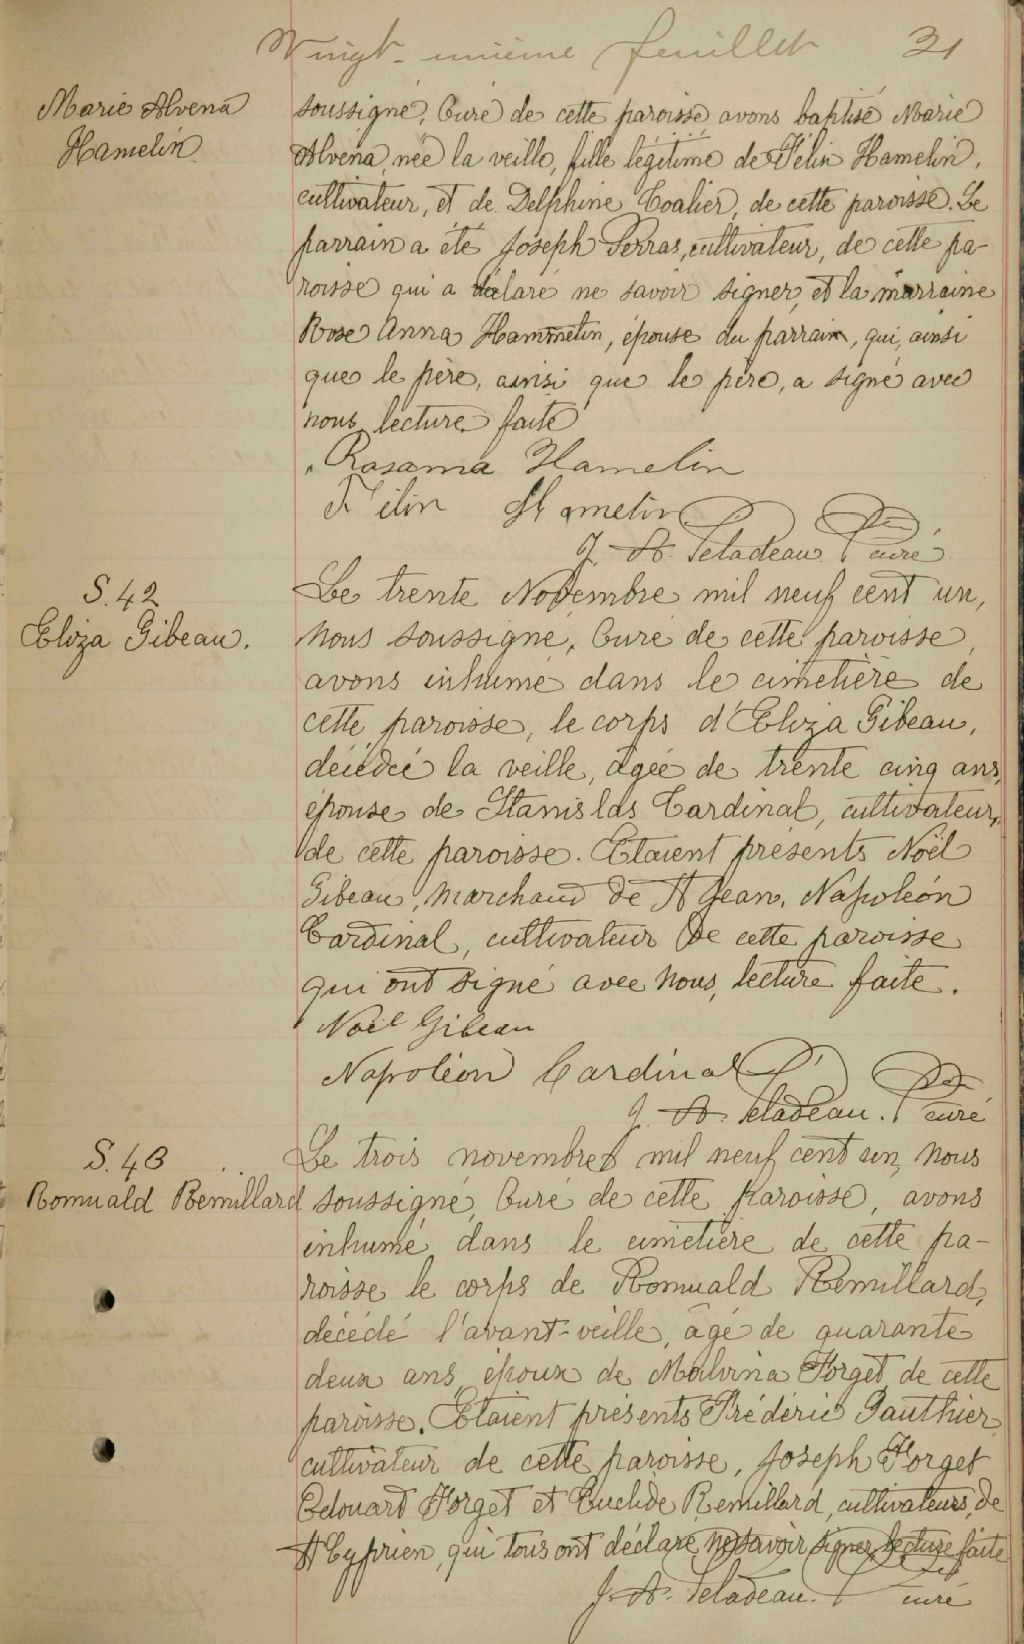 Vingt-unième feuillet 31
Marie Alvena
Hamelin
soussigné, Curé de cette paroisse avons baptisé Marie
Alvena, née la veille, fille légitime de Félix Hamelin,
cultivateur, et de Delphine Coalier, de cette paroisse. Le
parrain a été Joseph Serras, cultivateur, de cette pa-
roisse qui a déclaré ne savoir signer, et la marraine
Rose Anna Hammelin, épouse du parrain, qui, ainsi
que le père, ainsi que le père, a signé avec
nous, lecture faite
Rosanna Hamelin
Félix Hamelin
J. A. Peladeau Ptre curé
S. 42
Eliza Gibeau.
Le trente Novembre mil neuf cent un,
nous soussigné, Curé de cette paroisse,
avons inhumé dans le cimetière de
cette paroisse, le corps d'Eliza Gibeau,
décédée la veille, âgée de trente cinq ans,
épouse de Stanislas Cardinal, cultivateur,
de cette paroisse. Etaient présents Noël
Gibeau, marchand de St Jean, Napoléon
Cardinal, cultivateur de cette paroisse
qui ont signé avec nous, lecture faite.
Noël Gibeau
Napoléon Cardinal
J. A. Peladeau. Ptre curé
S. 43
Romuald Remillard
Le trois novembre mil neuf cent un, nous
soussigné, Curé de cette paroisse, avons
inhumé dans le cimetière de cette pa-
roisse le corps de Romuald Remillard,
décédé l'avant-veille, âgé de quarante
deux ans, époux de Malvina Forget, de cette
paroisse. Etaient présents Frédéric Gauthier,
cultivateur de cette paroisse, Joseph Forget
Edouard Forget et Euclide Remillard, cultivateurs, de
St Cyprien, qui tous ont déclaré ne savoir signer, lecture faite
J. A. Peladeau. Ptre curé